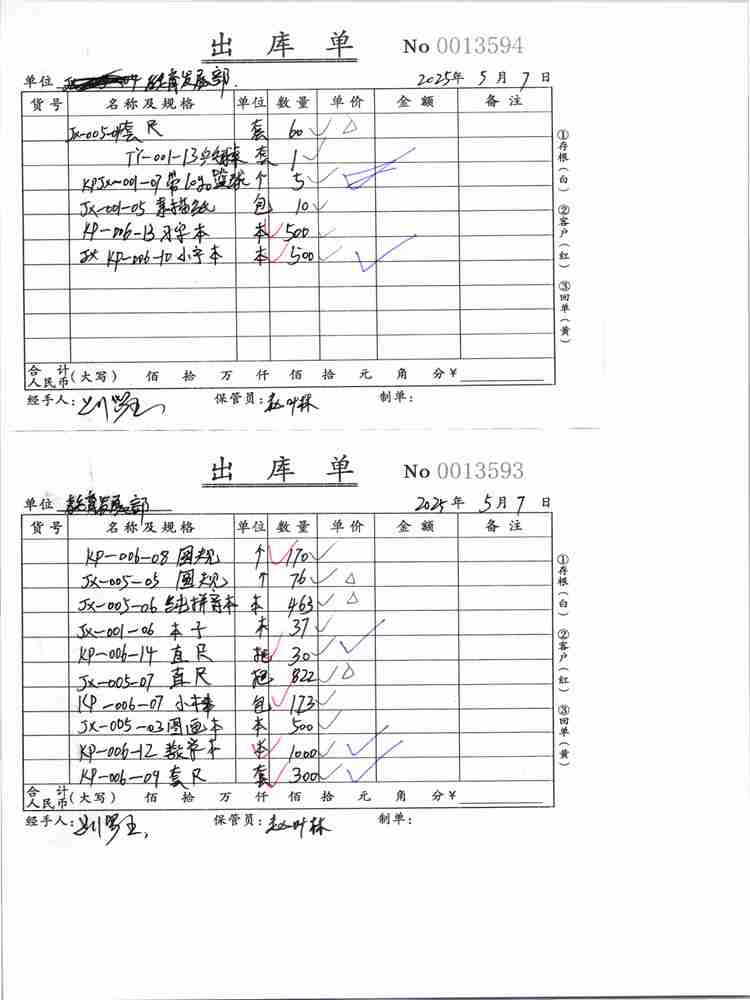 出 库 单 No 0013594
单位 教育发展部 2025年 5月 7日
货号 名称及规格 单位 数量 单价 金额 备注
JX-005-09套尺 套 60
TY-001-13乒乓球 套 1
KPJX-001-07带logo篮球 个 5
JX-001-05 素描纸 包 10
KP-006-13 习字本 本 500
KP-006-10 小字本 本 500
合计人民币(大写) 佰 拾 万 仟 佰 拾 元 角 分¥
经手人: 保管员:赵叶林 制单:
①存根(白) ②客户(红) ③回单(黄)
出 库 单 No 0013593
单位 教育发展部 2025年 5月 7日
货号 名称及规格 单位 数量 单价 金额 备注
KP-006-08 圆规 个 170
JX-005-05 圆规 个 76
JX-005-06 拼音本 本 463
JX-001-06 本子 本 37
KP-006-14 直尺 把 30
JX-005-07 直尺 把 822
KP-006-07 小棒 包 173
JX-005-03图画本 本 500
KP-006-12 数学本 本 1000
KP-006-09 套尺 套 300
合计人民币(大写) 佰 拾 万 仟 佰 拾 元 角 分¥
经手人: 保管员:赵叶林 制单:
①存根(白) ②客户(红) ③回单(黄)